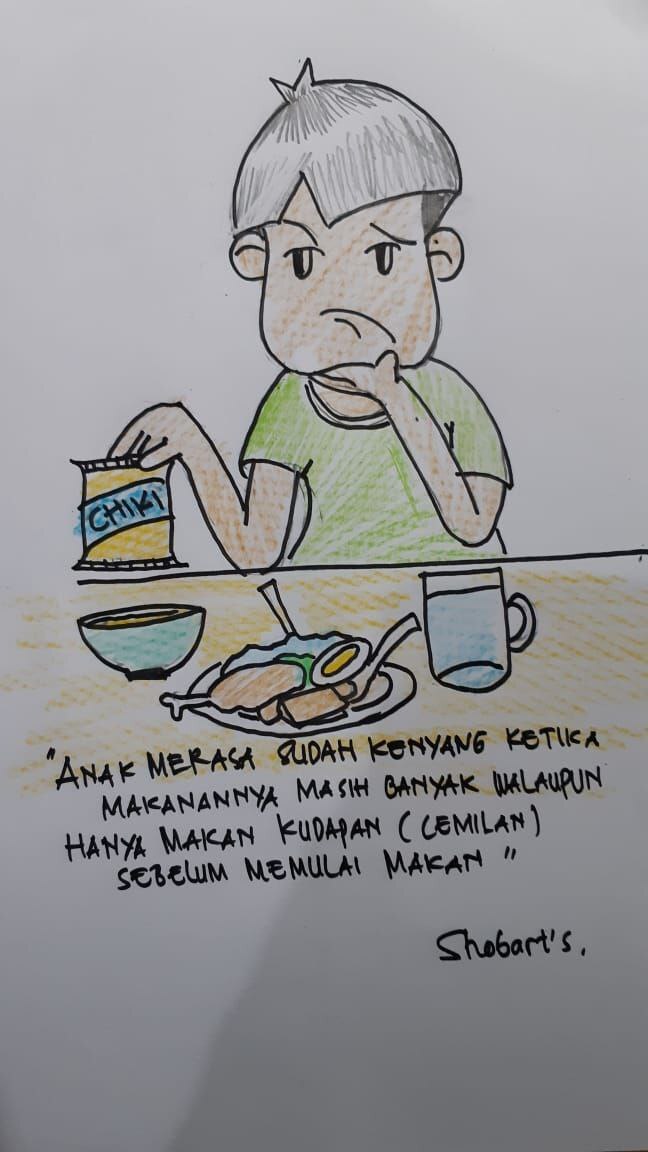 CHIKI
"ANAK MERASA SUDAH KENYANG KETIKA
MAKANANNYA MASIH BANYAK WALAUPUN
HANYA MAKAN KUDAPAN (CEMILAN)
SEBELUM MEMULAI MAKAN"
Shobart's.